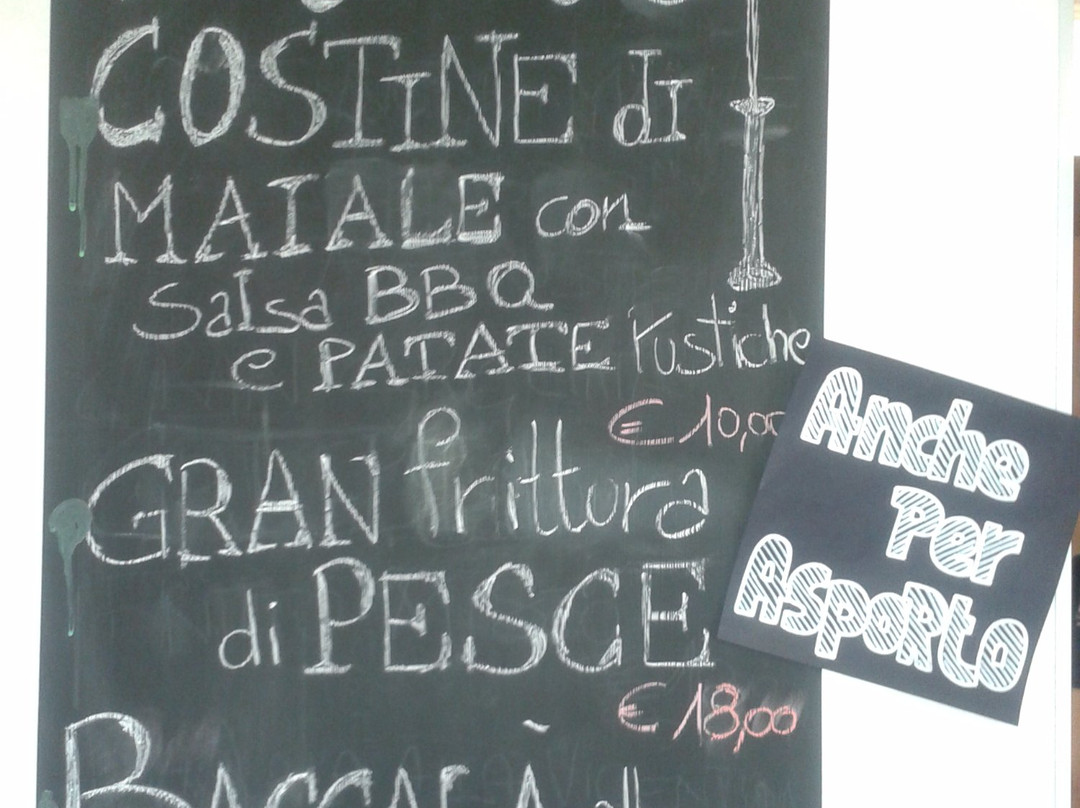 COSTINE di
MAIALE con
Salsa BBQ
e PATATE rustiche
€ 10,00
GRAN frittura
di PESCE
€ 18,00
BACCALÀ
Anche
Per
Asporto